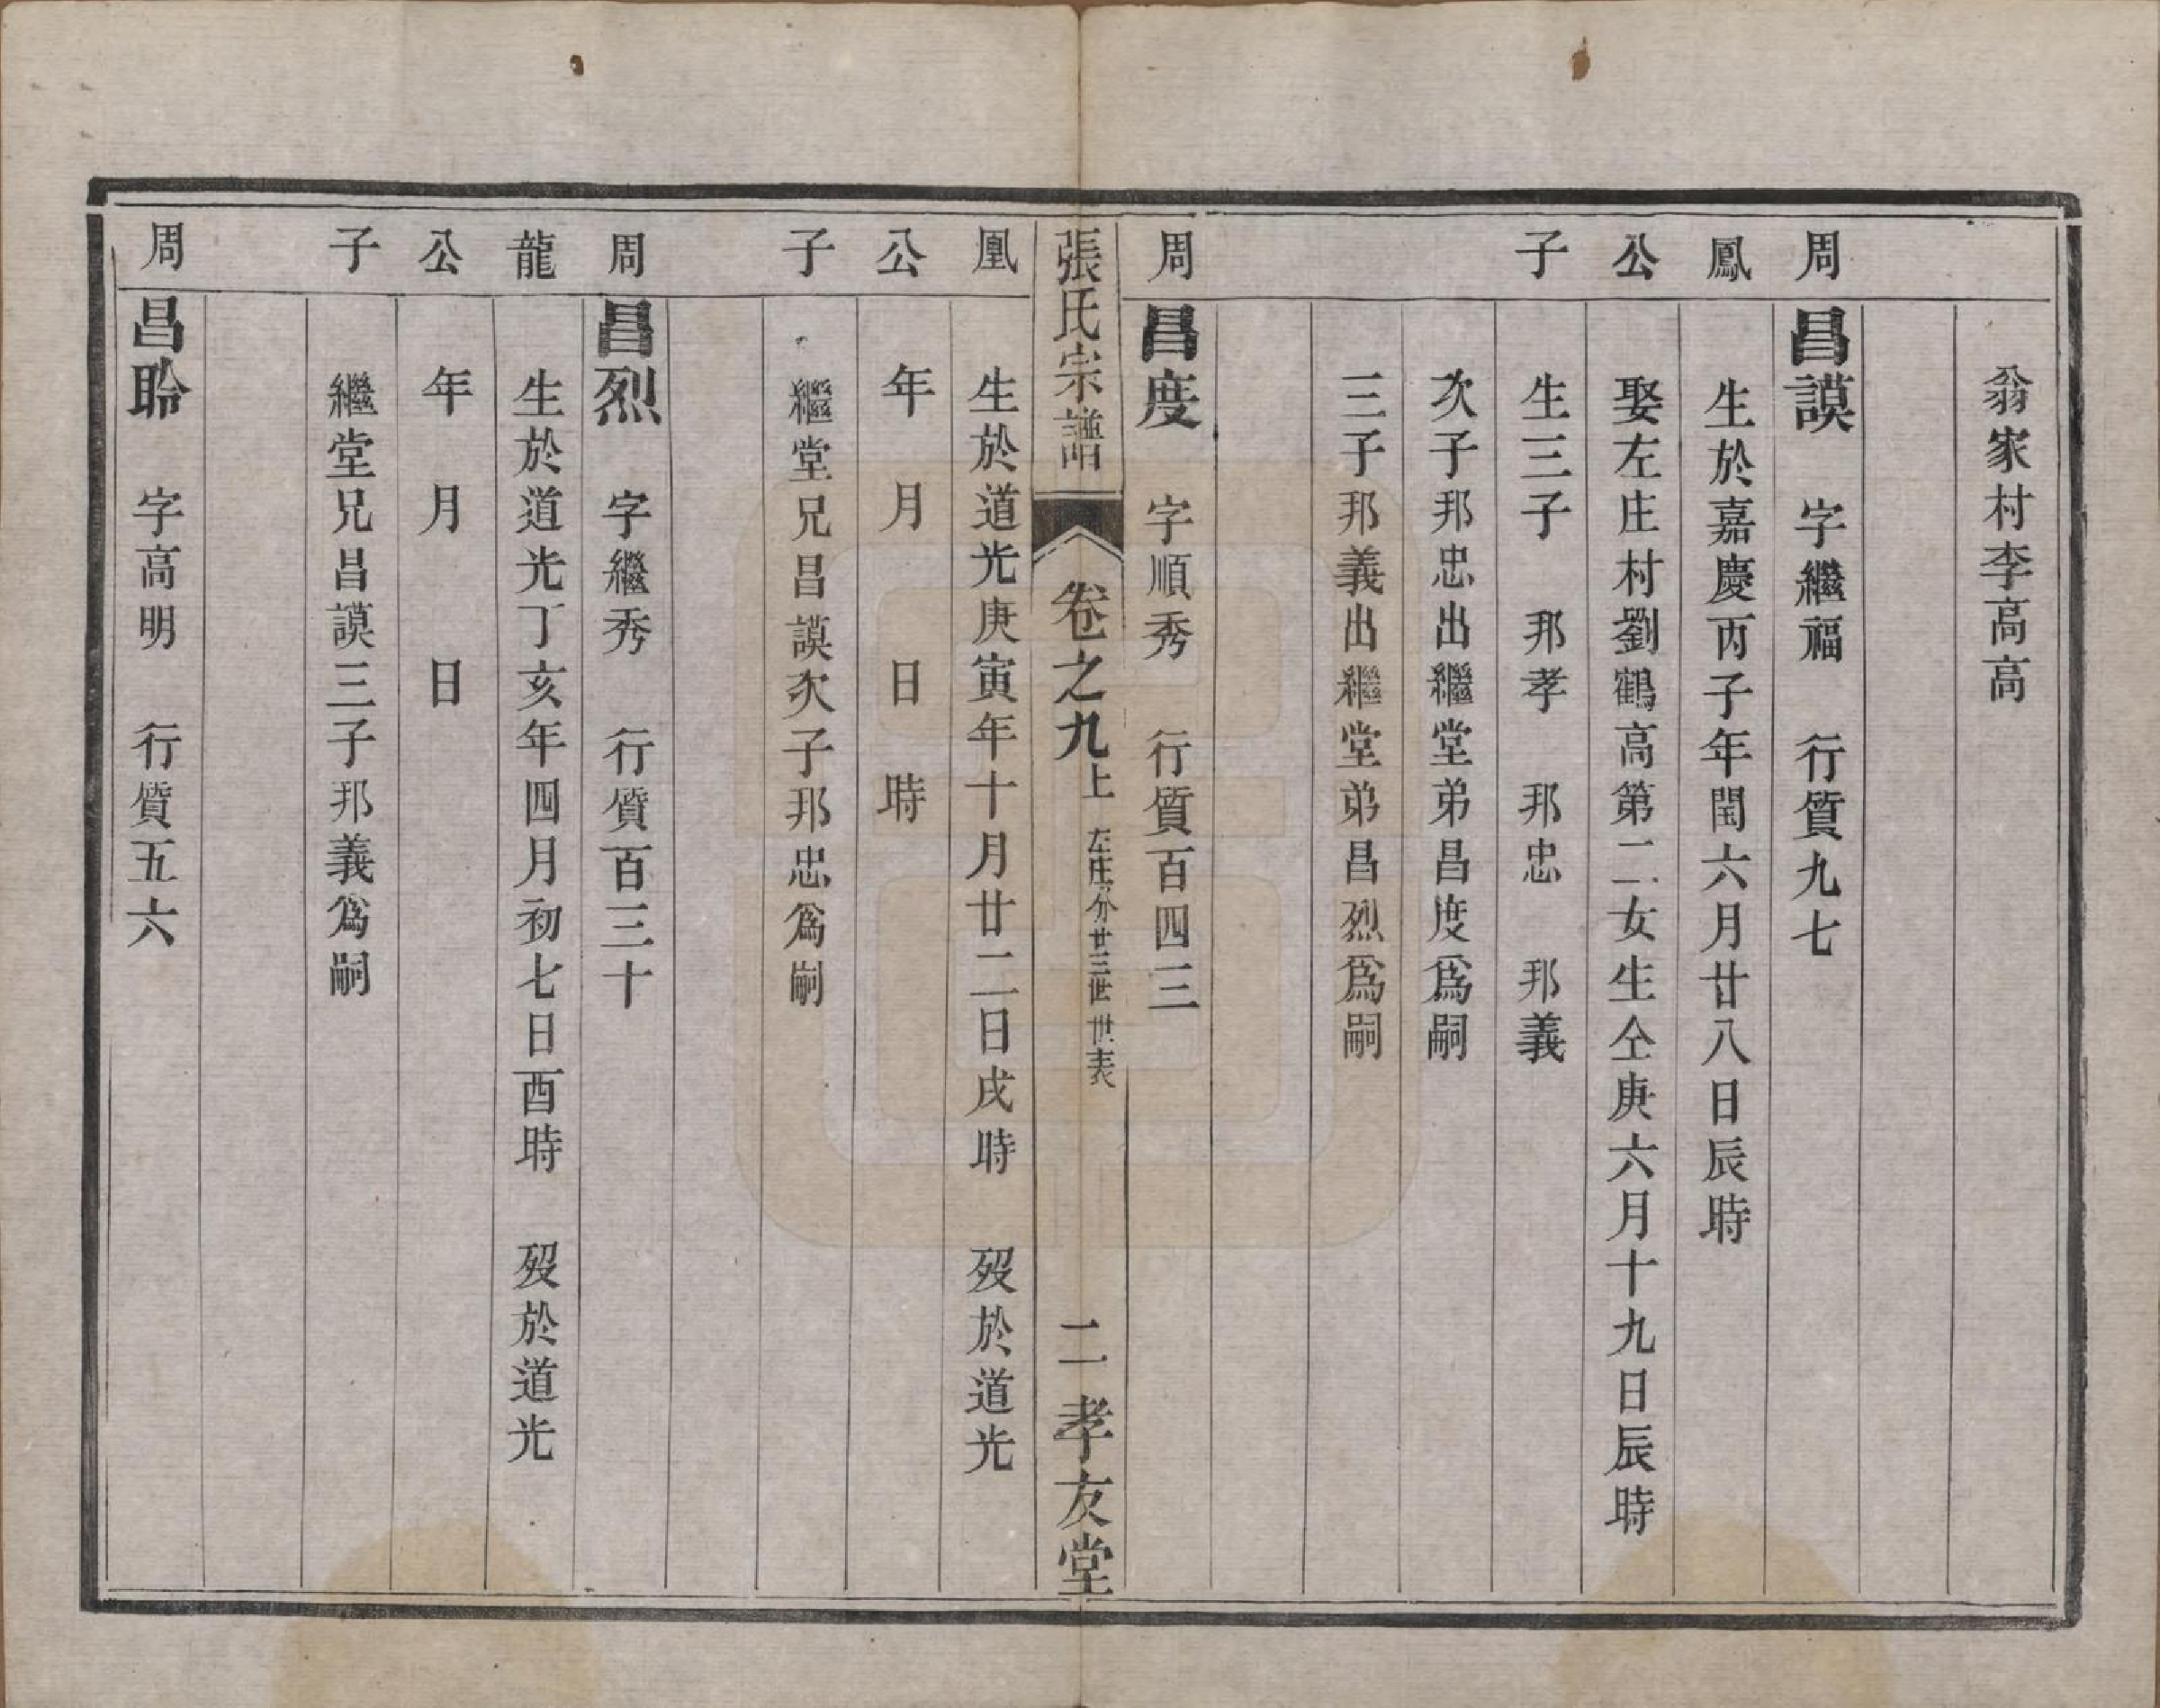 翁家村李高高
周 昌謨 字繼福 行質九七
鳳 生於嘉慶丙子年閏六月廿八日辰時
公 娶左庄村劉鶴高第二女生仝庚六月十九日辰時
子 生三子 邦孝 邦忠 邦義
次子邦忠出繼堂弟昌度爲嗣
三子邦義出繼堂弟昌烈爲嗣
周 昌度 字順秀 行質百四三
張氏宗譜 卷之九上 左庄分廿三世 世表 二 孝友堂
凰 生於道光庚寅年十月廿二日戌時 歿於道光
公 年 月 日 時
子 繼堂兄昌謨次子邦忠爲嗣
周 昌烈 字繼秀 行質百三十
龍 生於道光丁亥年四月初七日酉時 歿於道光
公 年 月 日
子 繼堂兄昌謨三子邦義爲嗣
周 昌聆 字高明 行質五六